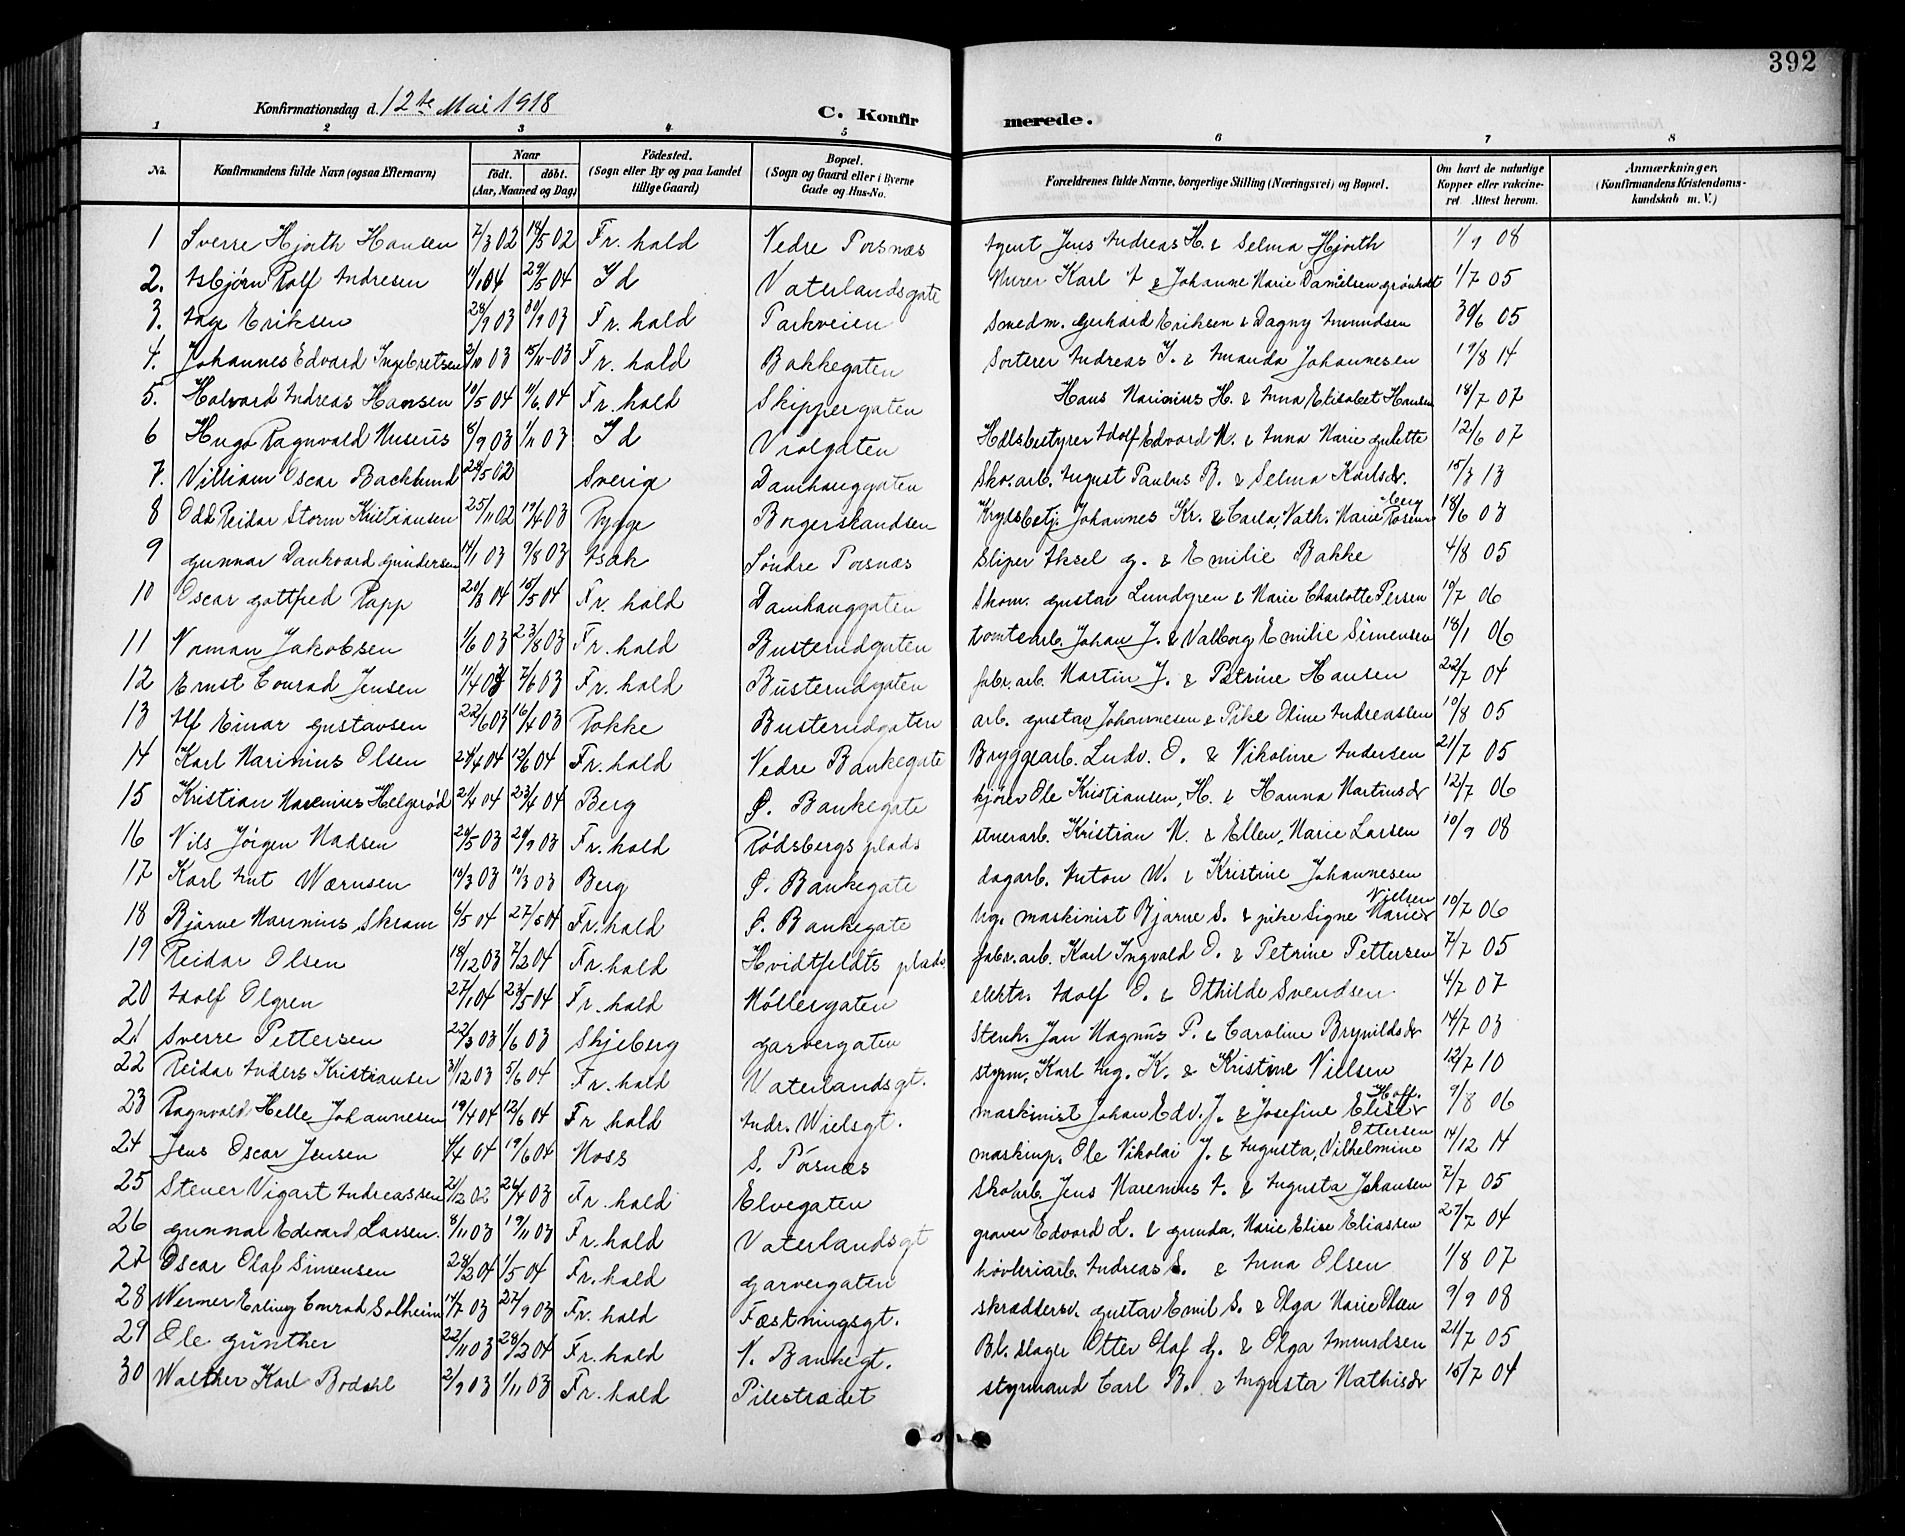 392
Konfirmationsdag d. 12te Mai 1918
C. Konfirmerede.
1 2 3 4 5 6 7 8
No. Konfirmandens fulde Navn (ogsaa Efternavn) Naar født. døbt. (Aar, Maaned og Dag) Fødested. (Sogn eller By og paa Landet tillige Gaard) Bopæl. (Sogn og Gaard eller i Byerne Gade og Hus-No. Forældrenes fulde Navne, borgerlige Stilling (Næringsvei) og Bopæl. Om havt de naturlige Kopper eller vakcineret Attest herom. Anmærkninger. (Konfirmandens Kristendomskundskab m. V.)
1 Sverre Hjorth Hansen 7/3 02 18/5 02 Fr.hald Nedre Porsnæs Agent Jens Andreas H. & Selma Hjorth 1/9 08
2. Asbjörn Rolf Andresen 11/1 04 29/5 04 Id Vaterlandsgate Murer Karl A & Johanne Marie Danielsen Grönholt 1/7 05
3. Aage Eriksen 28/9 03 30/9 03 Fr.hald Parkveien Smedm. Gerhard Eriksen & Dagny Amundsen 30/6 05
4. Johannes Edvard Ingebretsen 2/10 03 15/11 03 Fr.hald Bakkegaten Sorterer Andreas I. & Amanda Johannesen 19/8 14
5. Halvard Andreas Hansen 10/5 04 11/6 04 Fr.hald Skippergaten Hans Marinius H. & Anna Elisabet Hansen 18/7 07
6 Hugo Ragnvald Museus 8/9 03 1/11 03 Id Violgaten Hdlsbestyrer Adolf Edvard M. & Anna Marie Gulette 12/6 07
7. Villiam Oscar Backlund 28/5 02 Sverige Damhauggaten Sko.arb. August Paulus B. & Selma Karlsdr. 15/3 13
8 Odd Reidar Storm Kristiansen 25/11 02 19/4 03 Rygge Borgerskandsen Krydsbetj. Johannes Kr. & Carla, Nath. Marie Rosenberg 18/6 03
9 Gunnar Dankvard Gundersen 14/1 03 9/8 03 Asak Söndre Porsnæs Sliper Aksel G. & Emilie Bakke 4/8 05
10 Oscar Gottfred Rapp 20/3 04 15/5 04 Fr.hald Damhauggaten Skom. Gustav Lundgren & Marie Charlotte Persen 10/7 06
11 Norman Jakobsen 1/6 03 23/8 03 Fr.hald Busterudgaten Tomtearb. Johan J. & Valborg Emilie Simensen 18/1 06
12 Ernst Conrad Jensen 11/4 03 7/6 03 Fr.hald Busterudgaten fabr.arb. Martin J. & Petrine Hansen 22/7 04
13 Alf Einar Gustavsen 22/6 03 16/4 03 Rokke Busterudgaten arb. Gustav Johannesen & Pike Oline Andreassen 10/8 05
14 Karl Marinius Olsen 24/4 04 12/6 04 Fr.hald Nedre Bankegate Bryggearb. Ludv. O. & Nikoline Andersen 21/7 05
15 Kristian Marenius Helgerød 2/4 04 23/4 04 Berg Ø. Bankegate kjörer Ole Kristiansen, H. & Hanna Martinsdr 12/7 06
16 Nils Jörgen Madsen 20/5 03 20/9 03 Fr.hald Rödsbergs plads stuerarb. Kristian M. & Ellen, Marie Larsen 10/9 08
17 Karl Ant Wærnsen 10/3 03 19/3 03 Berg Ø. Bankegate dagarb. Anton W. & Kristine Johannesen
18 Bjarne Marenius Skram 6/5 04 27/5 04 Fr.hald Ø. Bankegate Ug. maskinist Bjarne S. & pike Signe Marie Nielsen 10/7 06
19 Reidar Olsen 18/12 03 7/2 04 Fr.hald Hvidtfeldts plads fabr.arb. Karl Ingvald O. & Petrine Pettersen 7/7 05
20 Adolf Olgren 27/1 04 23/5 04 Fr.hald Möllergaten elektr. Adolf O. & Othilde Svendsen 4/7 07
21 Sverre Pettersen 22/3 03 1/6 03 Skjeberg Garvergaten Stenh. Jan Magnus P. & Caroline Brynildsdr 14/7 03
22 Reidar Anders Kristiansen 31/12 03 5/6 04 Fr.hald Vaterlandsgt. styrm. Karl Aug. K. & Kristine Nielsen 12/7 10
23 Ragnvald Helle Johannesen 19/4 04 12/6 04 Fr hald Andr. Wielsgt. maskinist Johan Edv. J. & Josefine Elise Hoff. 9/8 06
24 Jens Oscar Jensen 4/4 04 19/6 04 Moss S. Porsnæs maskinp. Ole Nikolai J. & Augusta, Vilhelmine Ottersen 14/12 14
25 Stener Vigart Andreassen 21/12 02 26/4 03 Fr.hald Elvegaten Sko arb. Jens Marenius A. & Augusta Johansen 7/7 05
26 Gunnar Edvard Larsen. 8/11 03 19/11 03 Fr.hald Vaterlandsgt graver Edvard L. & Gunda, Marie Elise Eliassen 27/7 04
27 Oscar Olaf Simensen 28/2 04 1/5 04 Fr.hald Garvergaten hövleriarb. Andreas S. & Anna Olsen 1/8 07
28 Werner Erling Conrad Solheim 14/7 03 27/9 03 Fr.hald Fæstningsgt. skræddersv. Gustav Emil S. & Olga Marie Olsen 9/9 08
29 Ole Günther 22/11 03 28/2 04 Fr.hald N. Bankegt. Bl.slager Otter Olaf G. & Olga Amundsen 21/7 05
30 Walther Karl Bodahl 2/9 03 1/11 03 Fr.hald Pilestrædet styrmand Carl B. & Augusta Mathisdr 15/7 04